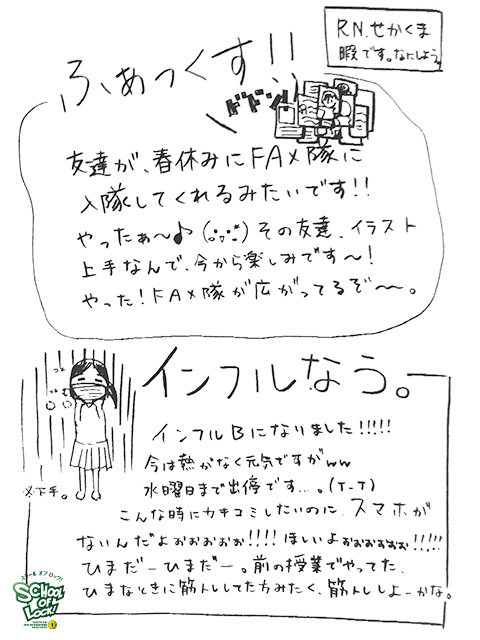 R.N.せかくま
暇です。なにしよう。
ふぁっくす!!
ドドン
友達が、春休みにFAX隊に
入隊してくれるみたいです!!
やったぁ〜♪ その友達、イラスト
上手なんで、今から楽しみです〜!
やった!FAX隊が広がってるぞ〜。
インフルなう。
インフルBになりました!!!!!
今は熱がなく元気ですがww
水曜日まで出停です…。(T-T)
こんな時にカキコミしたいのに、スマホが
ないんだよぉぉぉぉぉ!!!!ほしいよぉぉぉぉぉぉ!!!!!
ひまだーひまだー。前の授業でやってた、
ひまなときに筋トレしてた方みたく、筋トレしよーかな。
※下手。
スクールオブロック!
SCHOOL OF LOCK!